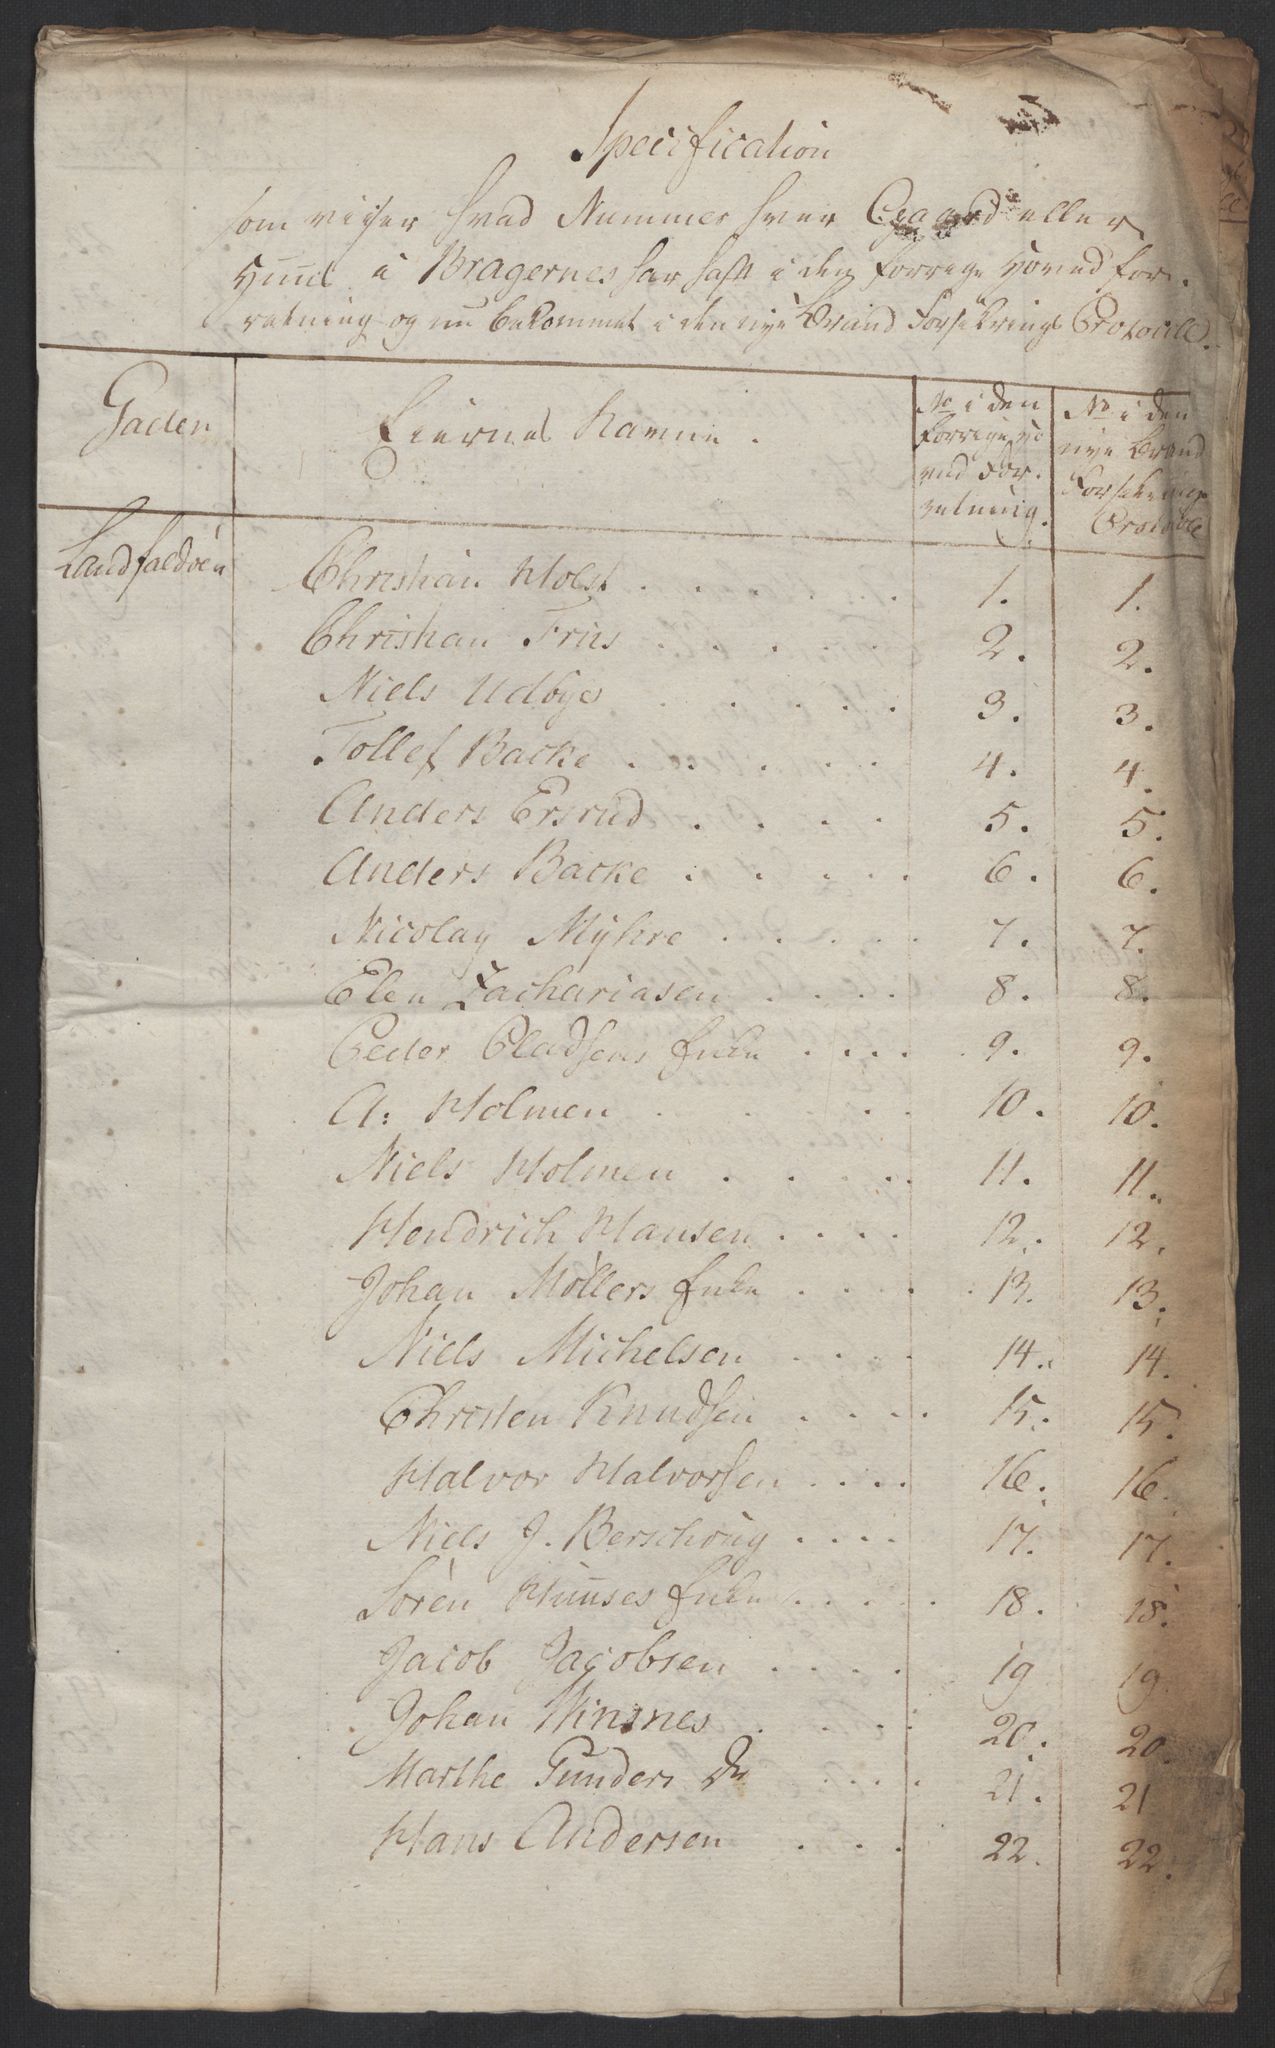 Specification
som viser hvad Nummer hver Egaard eller
Huus i Bragernes har haft i den forrige Hoved for-
retning og nu bekommet i den nye Brand Forsikrings Protocoll.
Gaden
Eiernes Navne.
No i den forrige Hoved Forretning.
No i den nye Brand Forsikrings Protocoll
Landfaldøen
Christian Holst . . . . . . 1. 1.
Christian Friis . . . . . 2. 2.
Niels Udbye . . . . . 3. 3.
Tollef Backe . . . . . 4. 4.
Anders Ersrud . . . . 5. 5.
Anders Backe . . . . . 6. 6.
Nicolay Myhre . . . . . 7. 7.
Elen Zachariasen . . . . 8. 8.
Peder Pladsens Enke . . . . 9. 9.
A: Holmen . . . . . 10. 10.
Niels Holmen . . . . . 11. 11.
Hendrich Hansen . . . . 12. 12.
Johan Møllers Enke . . . . 13. 13.
Niels Michelsen . . . . 14. 14.
Christen Knudsen . . . . 15. 15.
Halvor Halvorsen . . . . 16. 16.
Niels J. Berschoug . . . . 17. 17.
Sören Huuses Enke . . . . . 18. 18.
Jacob Jacobsen . . . . 19 19.
Johan Winsnes . . . . 20. 20.
Marthe Gunders Dr . . . . 21. 21
Hans Andersen . . . 22. 22.